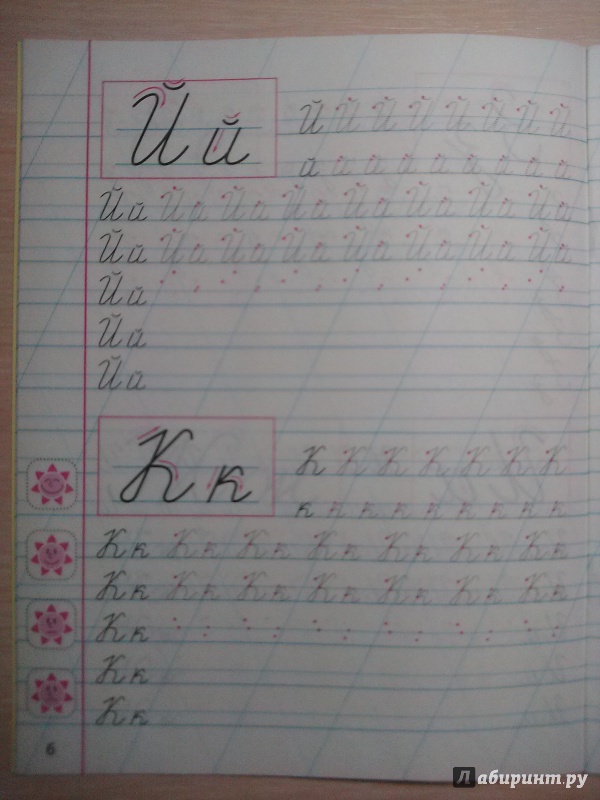 Й й
Й Й Й Й Й Й Й Й
й й й й й й й й й
Й й Й й Й й Й й Й й Й й Й й Й й
Й й Й й Й й Й й Й й Й й Й й Й й
Й й
Й й
Й й
К к
К К К К К К К
к к к к к к к к к
К к К к К к К к К к К к К к
К к К к К к К к К к К к К к
К к
К к
К к
6
Лабиринт.ру